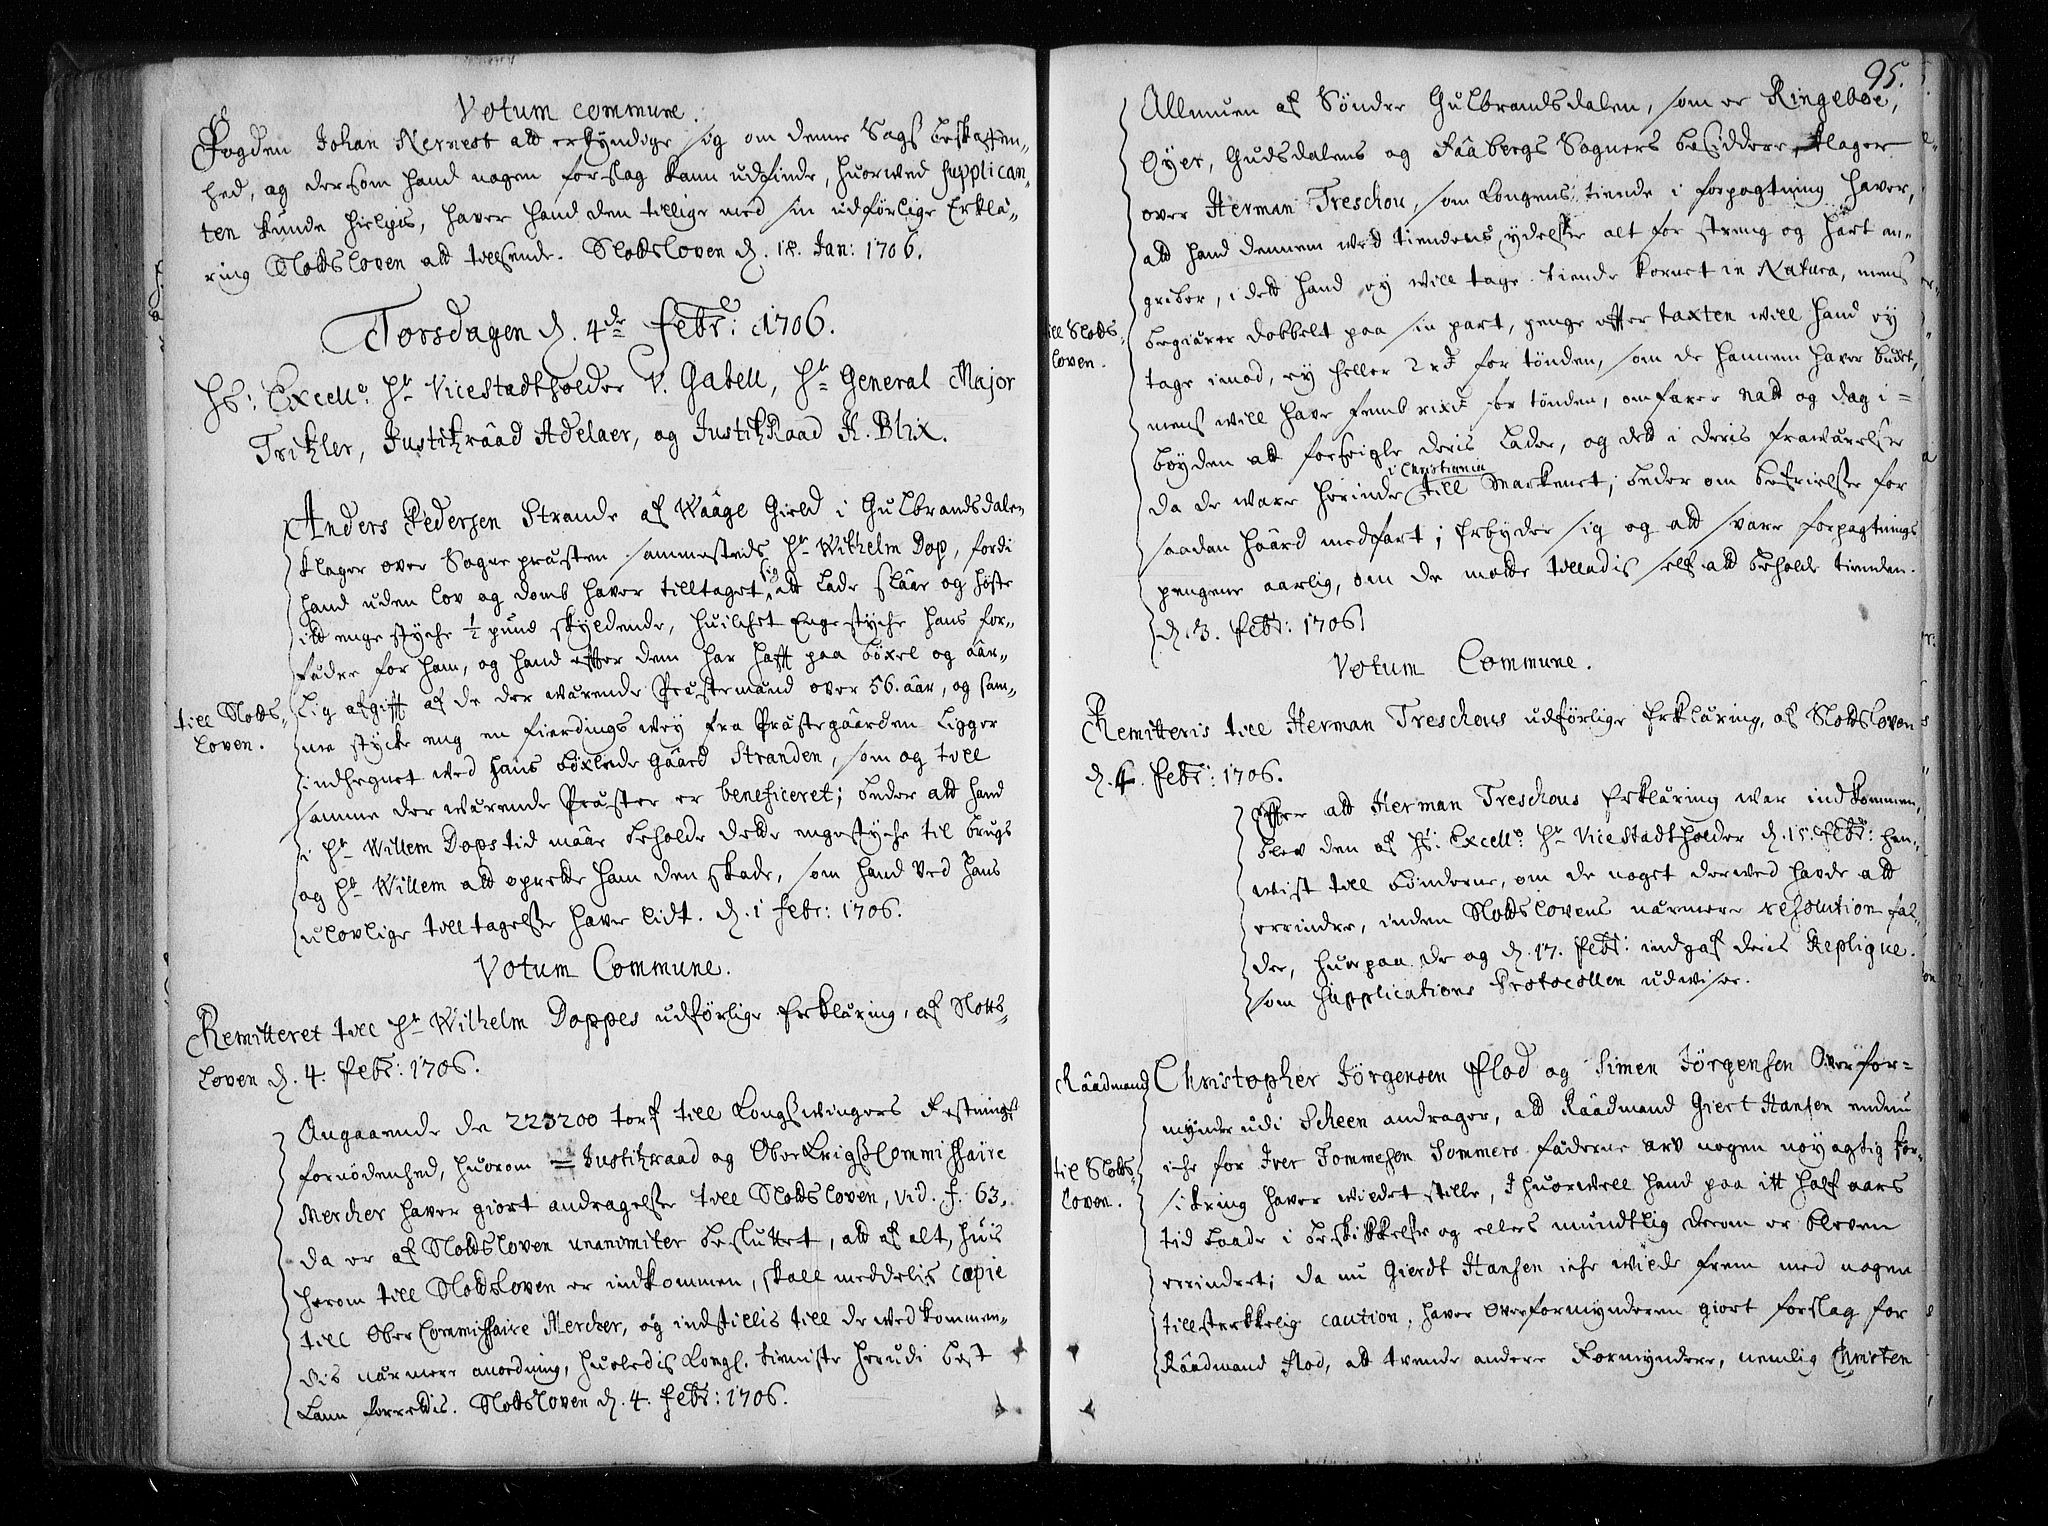 Votum commune.
Fogden Johan Nernest att erkyndige sig om denne Sags beskaffen-
hed, og dersom hand nogen forslag kann udfinde, huorved Supplican-
ten kunde hielpis, haver hand den tillige med sin udførlige Erklæ-
ring Slotsloven att tilsende. Slotsloven d. 18. Jan: 1706.
Torsdagen d. 4de Febr: 1706.
Hs: Excell: Hr Vicestadtholder V. Gabell, Hr General Major
Tritzler, Justitzraad Adelaer, og JustitzRaad H. Blix.
Anders Pedersen Strande af Waage Gield i Gulbrandsdalen
klager over Sogne præsten sammesteds Hr Wilhelm Dop, fordi
hand uden lov og domb haver tilltaget sig att lade slaae og høste
itt enge støche ½ pund skyldende, huilchet Engestyche hans for-
fædre for ham, og hand effter dem har hafft paa bøxel og aar-
lig afgifft af de der værende Præstemænd over 56. aar, og sam-
me støcke eng en fierdings vey fra Præstegaarden ligger
indhegnet ved hans bøxlede gaard Stranden, som og till
samme der værende Præster er beneficeret; beder att hand
i Hr Willem Dops tid maae beholde dette engestyche til brugs
og Hr Willem att oprette ham den skade, som hand ved hans
ulovlige till tagelse haver lidt. d. 1 Febr: 1706.
till Slots-
loven.
Votum Commune.
Remitteret till Hr Wilhelm Doppes udførlige Erklæring, af Slots-
loven d. 4. Febr: 1706.
Angaaende de 223200 torf till Kongssvingers Festnings
fornødenhed, huorom Justitzraad og OberKrigsCommissaire
Mercker haver giort andragelse till Slotsloven, vid. f. 63.
da er af Slotsloven unanimiter besluttet, att af alt, huis
herom till Slotsloven er indkommen, skall meddelis copie
till Ober Commissaire Mercker, og indstillis till de vedkommen-
dis nærmere anordning, huorledis Kongl. tieniste herudi best
kann forrettis. Slotsloven d. 4. Febr: 1706.
95.
Allmuen af Søndre Gulbrandsdalen, som er Ringeboe,
Øyer, Gudsdalens og Faabergs Sogners besiddere, klager
over Herman Treschou, som Kongens tiende i forpagtning haver,
att hand dennem ved tiendens ydelse alt for streng og hart an-
griber, i det hand ey will tage tiende kornet in Natura, mens
begiærer dobbelt paa sin part, penge effter taxten will hand ey
tage imod, ey heller 2 rd for tønden, som de hannem haver budet,
mens will have femb rixd for tønden, omfarer natt og dag i
bøyden att forseigle deris lader, og det i deris fraværelse
da de ware herinde i Christiania till Markenet; beder om befrielse for
saadan haard medfart; erbyder sig og att svare forpagtnings
pengene aarlig, om de motte tilladis self att beholde tienden.
d. 3. Febr: 1706.
till Slots-
loven.
Votum Commune.
Remitteris till Herman Treschous udførlige Erklæring, af Slotsloven
d. 4. Febr: 1706.
Effter att Herman Treschous Erklæring war indkommen,
blev den af Hs: Excell: Hr Vicestadtholder d. 15. Febr: hen-
wist till bønderne, om de noget derved havde att
errindre, inden Slotslovens nærmere resolution fal-
der, huorpaa de og d. 17. Febr: indgaf deris Replique.
som Supplications Protocollen udviser.
Raadmand Christopher Jørgensen Flod og Simen Jørgensen Overfor-
mynder udi Scheen andrager, att Raadmand Giert Hansen endnu
iche for Iver Tommesen Sommers fæderne arv nogen nøyagtig for-
sikring haver wildet stille, I huorvell hand paa itt half aars
tid baade i beskikkelse og ellers mundtlig derom er bleven
errindret; da nu Gierdt Hansen iche wilde frem med nogen
tillstrekkelig caution, haver Overformynderen giort forslag for
Raadmand Flod, att tvende andere Formyndere, nemlig Christen
til Slots-
loven.